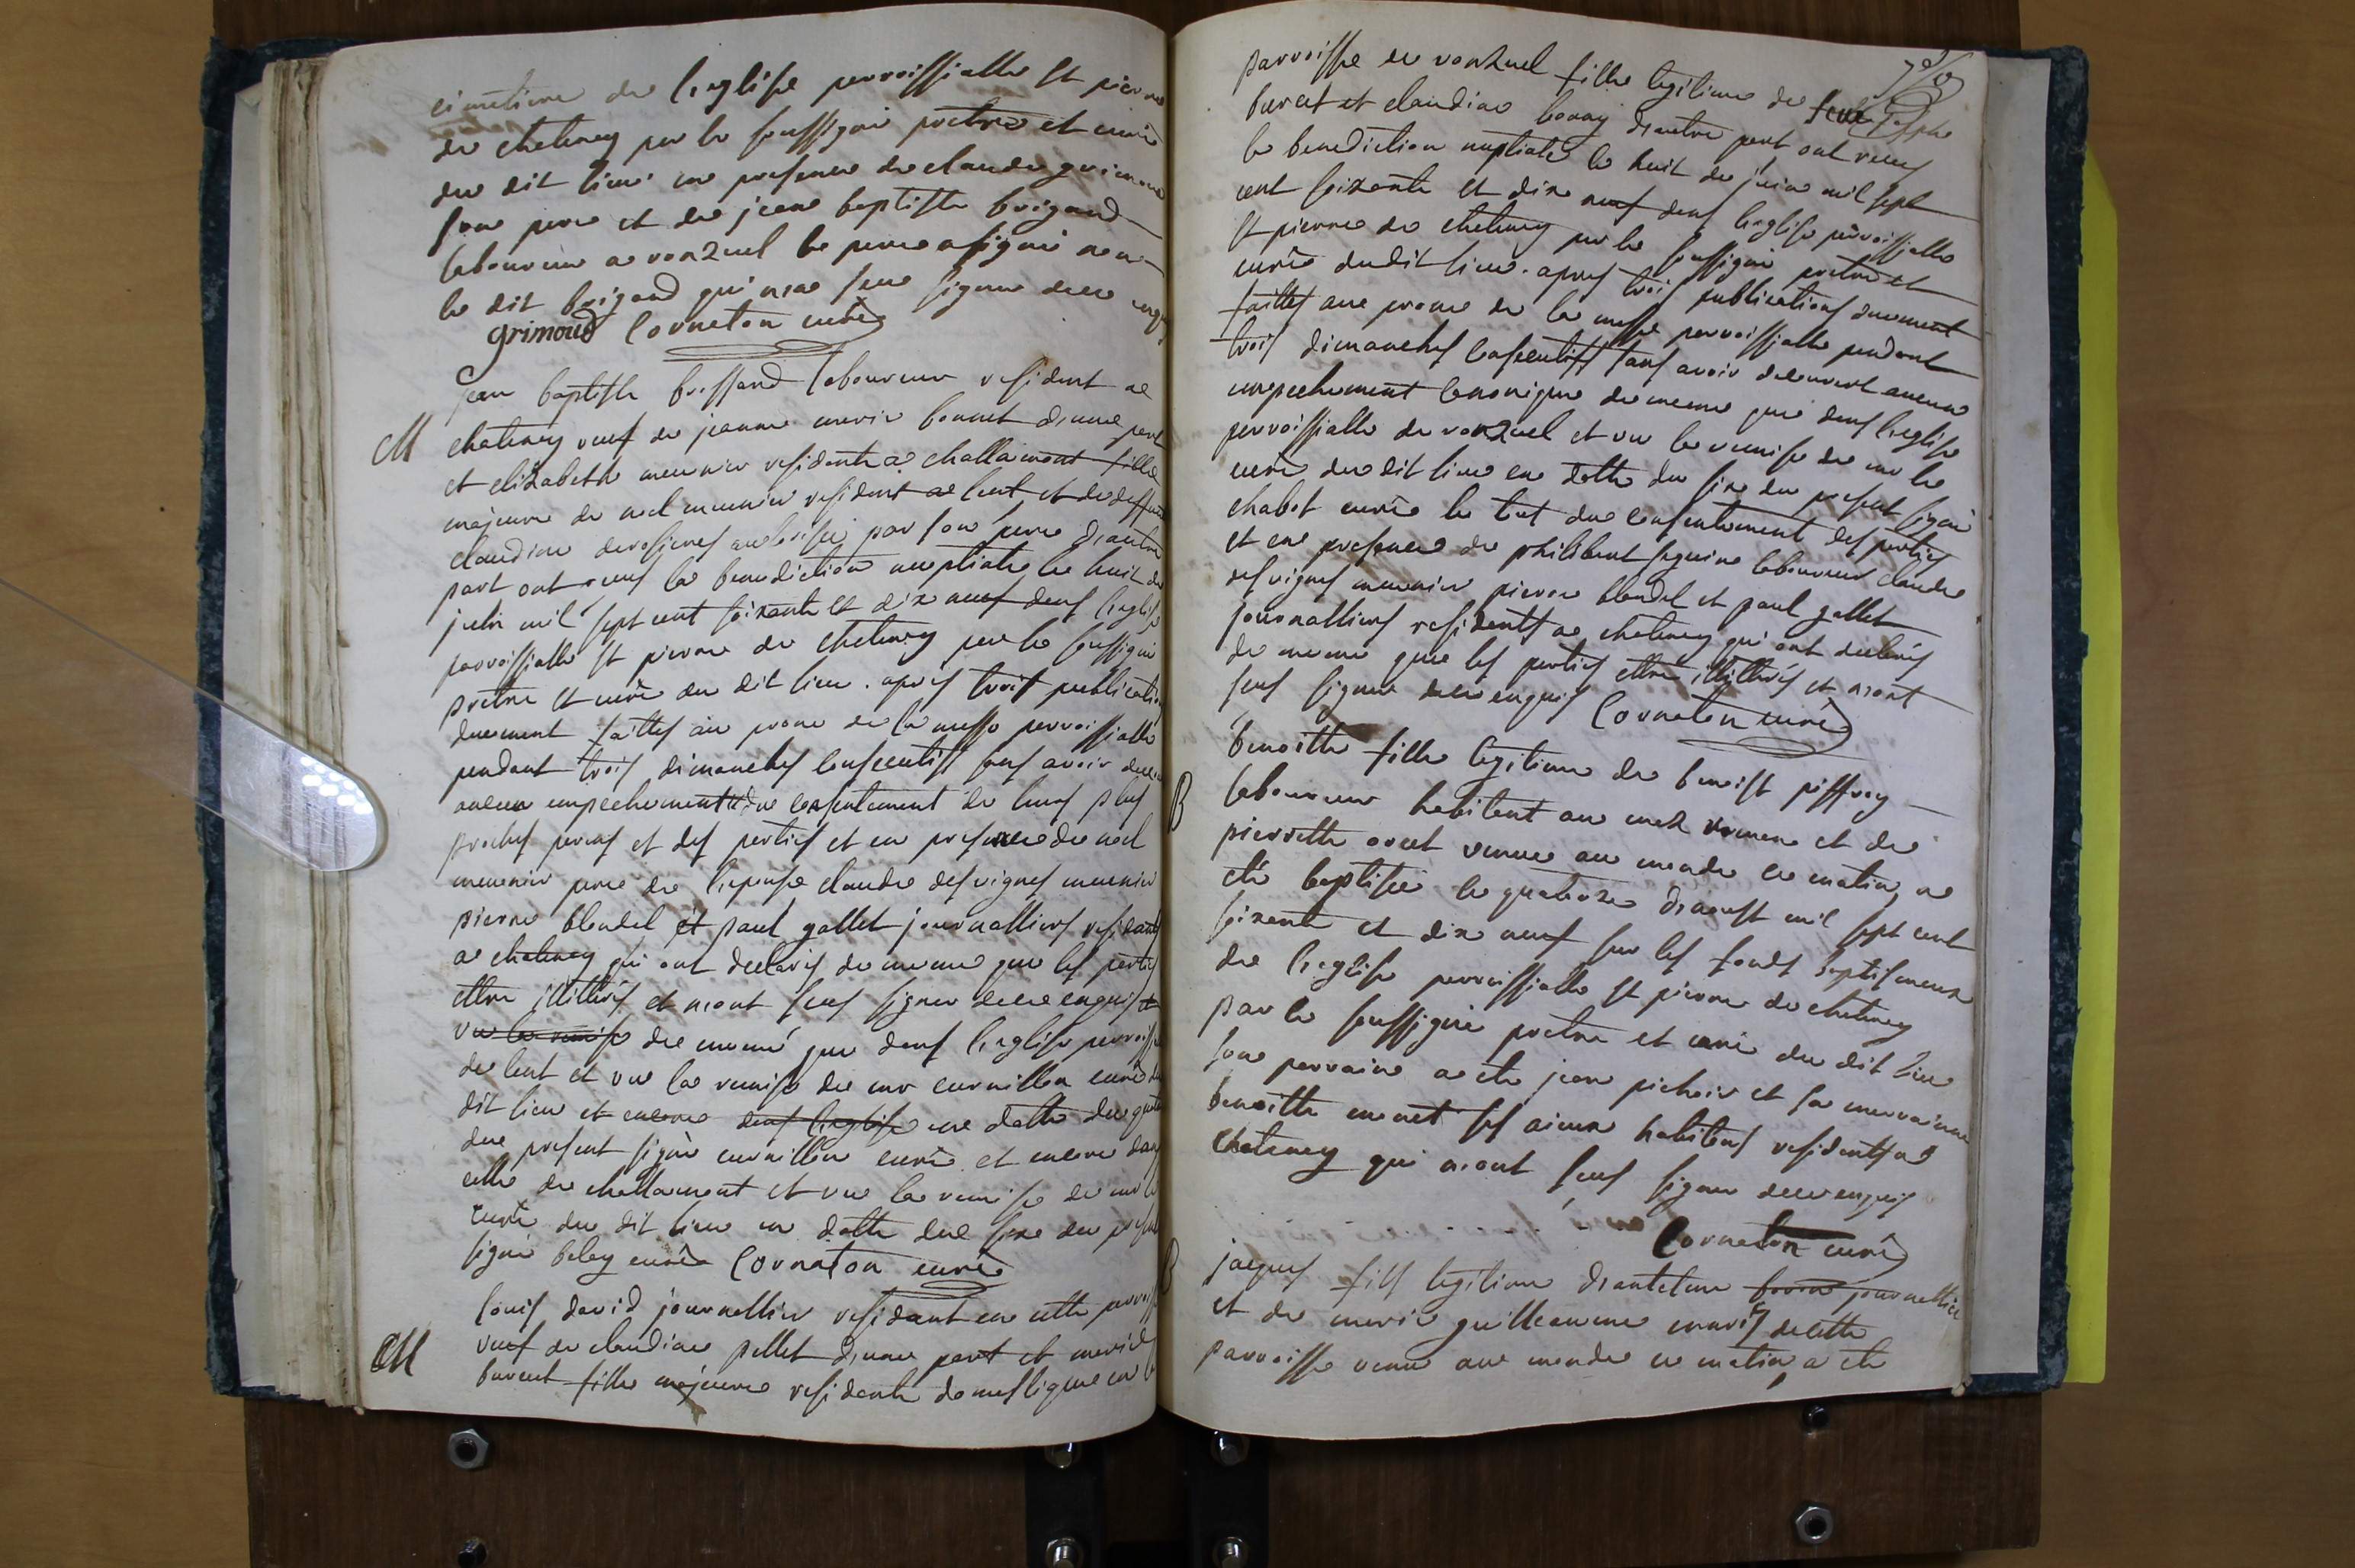 cimetiere de l'eglise parroissialle st pierre
de chatenay par le soussigné pretre et curé
du dit lieu en presence de claude grimoud
son pere et de jean baptiste brigand
laboureur a ronzuel le pere a signé non
le dit brigand qui n'a seu signer de ce enquis
grimoud Cornaton curé
jean baptiste bressand laboureur resident a
M chatenay veuf de jeanne marie bonnet d'une part
et elizabeth meunier residente a challamont fille
majeure de noel meunier resident a lent et de deffunte
claudine autorisée par son pere d'autre
part ont reçus la benediction nuptiale le huit de
juin mil sept cent soixante et dix neuf dans l'eglise
parroissialle st pierre de chatenay par le soussigné
pretre et curé du dit lieu . apres trois publications
duement faittes au prone de la messe parroissialle
pendant trois dimanches consecutifs sans avoir decouvert
aucun empechement du consentement de leurs plus
proches parens et des parties et en presence de noel
meunier pere de l'epouse claude desvignes meunier
pierre blondel et paul gallet journalliers residants
a chatenay qui ont declarés de meme que les parties
ettre illitterés et n'ont seus signer de ce enquis et
vu la remise de meme que dans l'eglise parroissialle
de lent et vu la remise de mr curnillon curé du
dit lieu et encore dans l'eglise en datte du quatre
du present signé curnillon curé et encore dans
celle de challamont et vu la remise de mr le
curé du dit lieu en datte du six du present
signé beley curé Cornaton curé
Louis david journallier residant en cette parroisse
M veuf de claudine pellet d'une part et marie
buret fille majeure residente domestique en la
parroisse de ronzuel fille legitime de feu joseph
buret et claudine d'autre part ont reçus
la benediction nuptiale le huit de juin mil sept
cent soixante et dix neuf dans l'eglise parroissialle
st pierre de chatenay par le soussigné pretre et
curé du dit lieu . apres trois publications duement
faittes au prone de la messe parroissialle pendant
trois dimanches consecutifs sans avoir decouvert aucun
empechement canonique de meme que dans l'eglise
parroissialle de ronzuel et vu la remise de mr le
curé du dit lieu en datte du six du present signé
chabot curé le tout du consentement des parties
et en presence de philibert seguin laboureur claude
desvignes meunier pierre blondel et paul gallet
journalliers residents a chatenay qui ont declarés
de meme que les parties ettre illitterés et n'ont
seus signer de ce enquis Cornaton curé
benoitte fille legitime de benoist piffray
B laboureur habitant au mas et de
pierrette venue au monde ce matin, a
eté baptisée le quatorze d'aoust mil sept cent
soixante et dix neuf sur les fonds baptismeux
de l'eglise parroissialle st pierre de chatenay
par le soussigné pretre et curé du dit lieu
son parrain a eté jean pichoir et sa marraine
benoitte monet ses aieux habitans residents a
chatenay qui n'ont seus signer de ce enquis
Cornaton curé
B jaques fils legitime d'antelme journallier
et de marie guilleaume mariés de cette
parroisse venu au monde ce matin, a eté